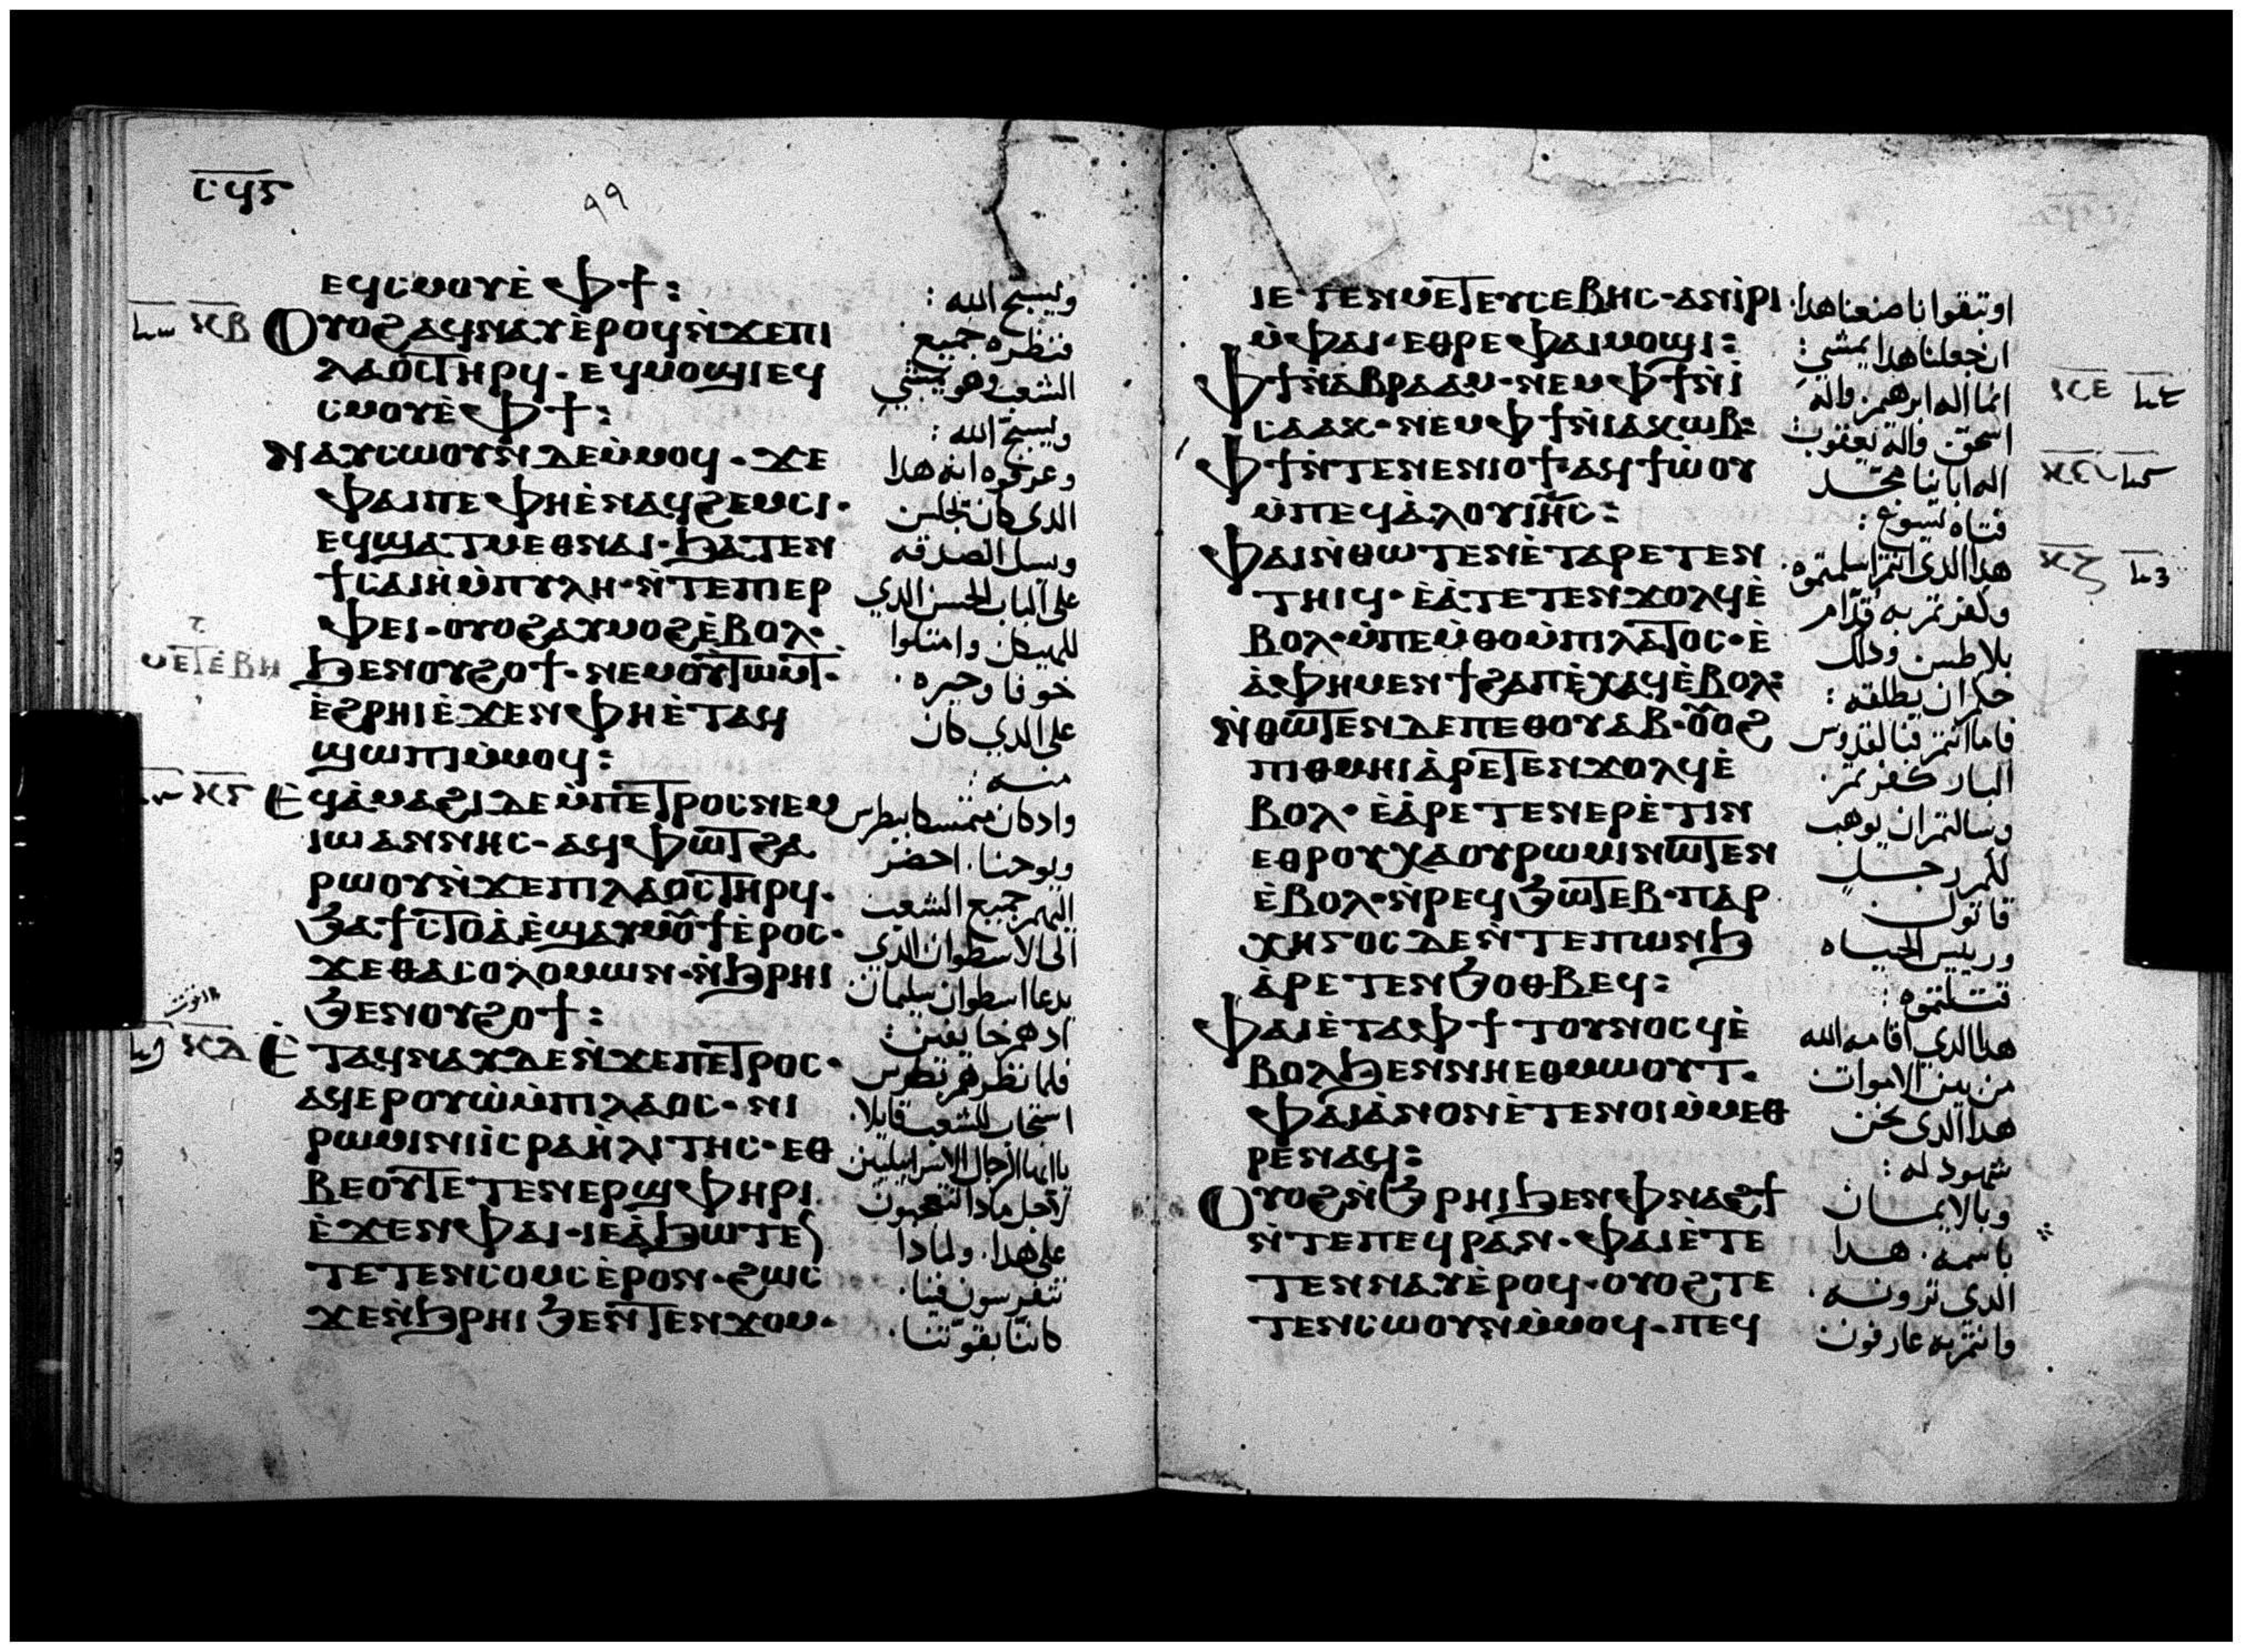 ⲥϥⲋ
٩٩
ⲉϥⲥⲙⲟⲩⲉ̀ ⲫϯ:
ⲕⲃ ⲟⲩⲟϩⲁϥⲛⲁⲩⲉ̀ⲣⲟϥⲛ̀ϫⲉⲡⲓ
ⲗⲁⲟⲥⲧⲏⲣϥ · ⲉϥⲙⲟϣⲓⲉϥ
ⲥⲙⲟⲩⲉ̀ ⲫϯ:
ⲛⲁⲩⲥⲱⲟⲩⲛ ⲇⲉⲙ̀ⲙⲟϥ · ϫⲉ
ⲫⲁⲓⲡⲉ ⲫⲏⲉ̀ⲛⲁϥϩⲉⲙⲥⲓ ·
ⲉϥϣⲁⲧⲙⲉⲑⲛⲁⲓ · ϧⲁⲧⲉⲛ
ϯⲥⲁⲓⲏ̀ⲙ̀ⲡⲩⲗⲏ · ⲛ̀ⲧⲉⲡⲓⲉⲣ
ⲫⲉⲓ · ⲟⲩⲟϩⲁⲩⲙⲟϩⲉ̀ⲃⲟⲗ ·
ϧⲉⲛⲟⲩϩⲟϯ · ⲛⲉⲙⲟⲩⲧⲱⲙⲧ ·
ⲉ̀ϩⲣⲏⲓⲉ̀ϫⲉⲛⲫⲏⲉ̀ⲧⲁϥ
ϣⲱⲡⲓⲙ̀ⲙⲟϥ:
ⲕⲅ ⲉϥⲁ̀ⲙⲁϩⲓⲇⲉⲙ̀ⲡⲉⲧⲣⲟⲥⲛⲉⲙ
ⲓⲱⲁⲛⲛⲏⲥ · ⲁϥⲫⲱⲧϩⲁ
ⲣⲱⲟⲩⲛ̀ϫⲉⲡⲓⲗⲁⲟⲥⲧⲏⲣϥ ·
ϧⲁϯⲥⲧⲟⲁ̀ⲉ̀ϣⲁⲩⲙⲟⲩϯⲉ̀ⲣⲟⲥ ·
ϫⲉⲑⲁⲥⲟⲗⲟⲙⲱⲛ · ⲛ̀ϧⲣⲏⲓ
ϧⲉⲛⲟⲩϩⲟϯ:
ⲕⲇ ⲉ̀ⲧⲁϥⲛⲁⲩⲇⲉⲛ̀ϫⲉⲡⲉⲧⲣⲟⲥ ·
ⲁϥⲉⲣⲟⲩⲱ̀ⲙ̀ⲡⲓⲗⲁⲟⲥ · ⲛⲓ
ⲣⲱⲙⲓⲛⲓⲓ̀ⲥⲣⲁⲏ̀ⲗⲓⲧⲏⲥ · ⲉⲑ
ⲃⲉⲟⲩⲧⲉⲧⲉⲛⲉⲣϣⲫⲏⲣⲓ
ⲉ̀ϫⲉⲛⲫⲁⲓ · ⲓⲉⲁ̀ϧⲱⲧⲉ
ⲧⲉⲧⲉⲛⲥⲟⲙⲥⲉ̀ⲣⲟⲛ · ϩⲱⲥ
ϫⲉⲛ̀ϧⲣⲏⲓ ϧⲉⲛⲧⲉⲛϫⲟⲙ ·
ويسبح الله :
فنظره جميع
الشعب وهو يمشي
ويسبح الله :
وعرفوه انه هدا
الدي كان يجلس
ويسل الصدقه
على الباب الحسن الدي
للهيكل وامتلوا
خوفا وحيره ·
على الدي كان
منه :
واد كان متمسكا ببطرس
ويوحنا · احضر
اليهم جميع الشعب
الى الاسطوان الدي
يدعا اسطوان سليمان
اد هم خايفين :
فلما نظرهم بطرس
استجاب للشعب قايلا ·
يا ايها الرجال الاسراييليين
لاجل مادا تتعجبون
على هدا · ولمادا
تتفرسون فينا ·
كاننا بقوتنا ·
ⲓⲉ ⲧⲉⲛⲙⲉⲧⲉⲩⲥⲉⲃⲏⲥ · ⲁⲛⲓ̀ⲣⲓ
ⲙ̀ⲫⲁⲓ · ⲉⲑⲣⲉ ⲫⲁⲓⲙⲟϣⲓ:
ⲫϯⲛ̀ⲁⲃⲣⲁⲁⲙ · ⲛⲉⲙ ⲫϯⲛ̀ⲓ̀ ⲕⲉ
ⲥⲁⲁⲕ · ⲛⲉⲙ ⲫϯⲛ̀ⲓⲁⲕⲱⲃ:
ⲫϯⲛ̀ⲧⲉⲛⲉⲛⲓⲟϯ · ⲁϥϯⲱ̀ⲟⲩ ⲕⲋ
ⲙ̀ⲡⲉϥⲁ̀ⲗⲟⲩⲓⲏⲥ:
ⲫⲁⲓⲛ̀ⲑⲱⲧⲉⲛⲉ̀ⲧⲁⲣⲉⲧⲉⲛ ⲕⲍ
ⲧⲏⲓϥ · ⲉ̀ⲁ̀ⲧⲉⲧⲉⲛϫⲟⲗϥⲉ̀
ⲃⲟⲗ · ⲙ̀ⲡⲉⲙ̀ⲑⲟⲙ̀ⲡⲓⲗⲁⲧⲟⲥ · ⲉ̀
ⲁ̀ⲫⲏⲙⲉⲛ ϯϩⲁⲡⲉ̀ⲭⲁϥⲉ̀ⲃⲟⲗ:
ⲛ̀ⲑⲱⲧⲉⲛⲇⲉⲡⲉⲑⲟⲩⲁⲃ · ⲟⲩⲟϩ
ⲡⲓⲑⲙⲏⲓⲁ̀ⲣⲉⲧⲉⲛϫⲟⲗϥⲉ̀
ⲃⲟⲗ · ⲉ̀ⲁ̀ⲣⲉⲧⲉⲛⲉⲣⲉ̀ⲧⲓⲛ
ⲉⲑⲣⲟⲩⲭⲁⲟⲩⲣⲱⲙⲓⲛⲱⲧⲉⲛ
ⲉ̀ⲃⲟⲗ · ⲛ̀ⲣⲉϥϧⲱⲧⲉⲃ · ⲡⲁⲣ
ⲭⲏⲅⲟⲥ ⲇⲉⲛ̀ⲧⲉⲡⲱⲛϧ
ⲁ̀ⲣⲉⲧⲉⲛϧⲟⲑⲃⲉϥ:
ⲫⲁⲓⲉ̀ⲧⲁⲫϯ ⲧⲟⲩⲛⲟⲥϥⲉ̀
ⲃⲟⲗϧⲉⲛⲛⲏⲉⲑⲙⲱⲟⲩⲧ ·
ⲫⲁⲓⲁ̀ⲛⲟⲛⲉ̀ⲧⲉⲛⲟⲓⲙ̀ⲙⲉⲑ
ⲣⲉⲛⲁϥ:
ⲟⲩⲟϩⲛ̀ϧⲣⲏⲓϧⲉⲛⲫⲛⲁϩϯ
ⲛ̀ⲧⲉⲡⲉϥⲣⲁⲛ · ⲫⲁⲓⲉ̀ⲧⲉ
ⲧⲉⲛⲛⲁⲩⲉ̀ⲣⲟϥ · ⲟⲩⲟϩⲧⲉ
ⲧⲉⲛⲥⲱⲟⲩⲛⲙ̀ⲙⲟϥ · ⲡⲉϥ
او بتقوانا صنعنا هدا
ان جعلنا هدا يمشي :
انما اله ابرهيم واله
اسحق واله يعقوب
اله اباينا مجد
فتاه يسوع :
هدا الدي انتم اسلمتموه
وكفرتم به قدام
بيلاطس ودلك
حكم ان يطلقه :
فاما انتم فبالقدوس
البار كفرتم
وسالتم ان يوهب
لكم رجل
قاتول
ورييس الحياه
قتلتموه :
هدا الدي اقامه الله
من بين الاموات
هدا الدي نحن
شهود له :
وبالايمان
باسمه · هدا
الدي ترونه ·
وانتم به عارفون